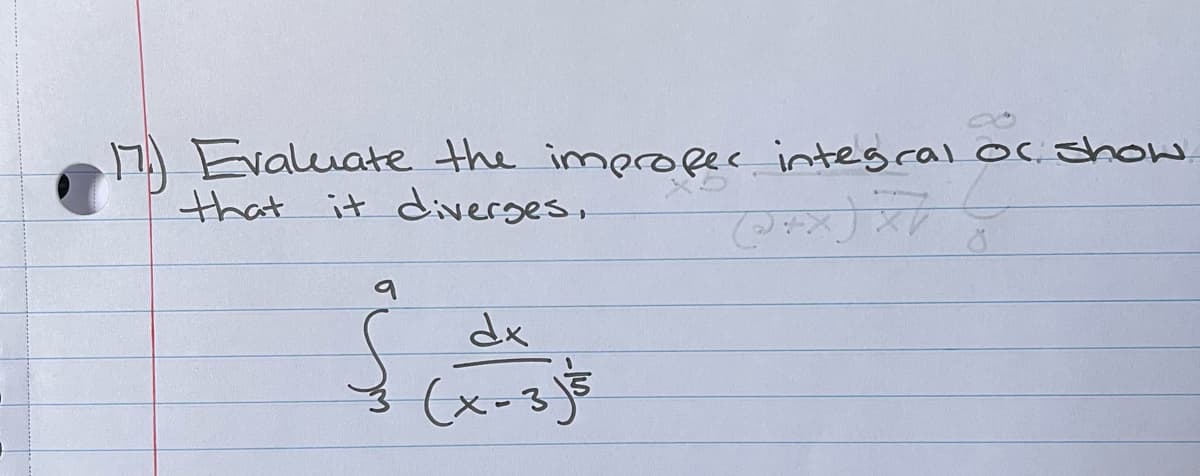 17.) Evaluate the improper integral or show
that it diverges.
9
∫ dx
3 (x-3)^{1/5}